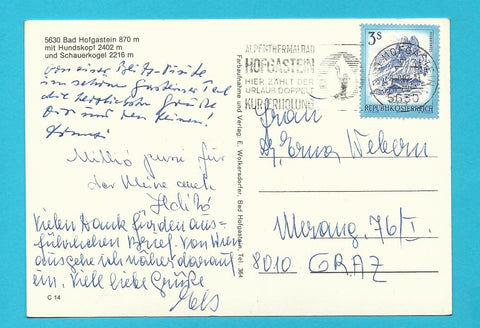 5630 Bad Hofgastein 870 m
mit Hundskopf 2402 m
und Schauerkogel 2216 m
Von einer Blitz-Visite
im schönen Gasteiner Tal
die herzlichsten Grüße
Dir und den Deinen!
für
der Meine auch
Vielen Dank für den aus-
führlichen Brief. Von Wien
aus gehe ich näher darauf
ein. Viele liebe Grüße
Els
C 14
Farbaufnahme und Verlag: E. Wolkersdorfer, Bad Hofgastein, Tel. 364
ALPENTHERMALBAD
HOFGASTEIN
HIER ZÄHLT DER
URLAUB DOPPELT
KURERHOLUNG
3S
REPUBLIK ÖSTERREICH
5630
Frau
Dr. Erna Webern
76/I.
8010 GRAZ